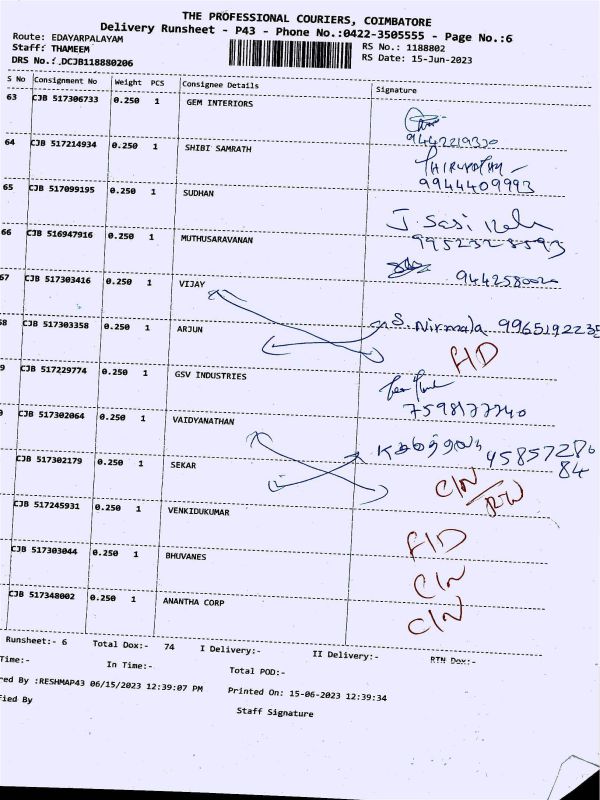 THE PROFESSIONAL COURIERS, COIMBATORE
Delivery Runsheet - P43 - Phone No.:0422-3505555 - Page No.:6
Route: EDAYARPALAYAM RS No.: 1188802
Staff: THAMEEM RS Date: 15-Jun-2023
DRS No.:.DCJB118880206
S No Consignment No Weight PCS Consignee Details Signature
63 CJB 517306733 0.250 1 GEM INTERIORS
9442219320
64 CJB 517214934 0.250 1 SHIBI SAMRATH
9944409993
65 CJB 517099195 0.250 1 SUDHAN J. Sasi
9952328593
66 CJB 516947916 0.250 1 MUTHUSARAVANAN
67 CJB 517303416 0.250 1 VIJAY
8 CJB 517303358 0.250 1 ARJUN S. Nirmala 9965192235
9 CJB 517229774 0.250 1 GSV INDUSTRIES
CJB 517302064 0.250 1 VAIDYANATHAN
CJB 517302179 0.250 1 SEKAR C/N
CJB 517245931 0.250 1 VENKIDUKUMAR
CJB 517303044 0.250 1 BHUVANES C/N
CJB 517348002 0.250 1 ANANTHA CORP C/N
Runsheet:- 6 Total Dox:- 74 I Delivery:- II Delivery:- RTN Dox:-
Time:- In Time:- Total POD:-
red By :RESHMAP43 06/15/2023 12:39:07 PM Printed On: 15-06-2023 12:39:34
fied By Staff Signature